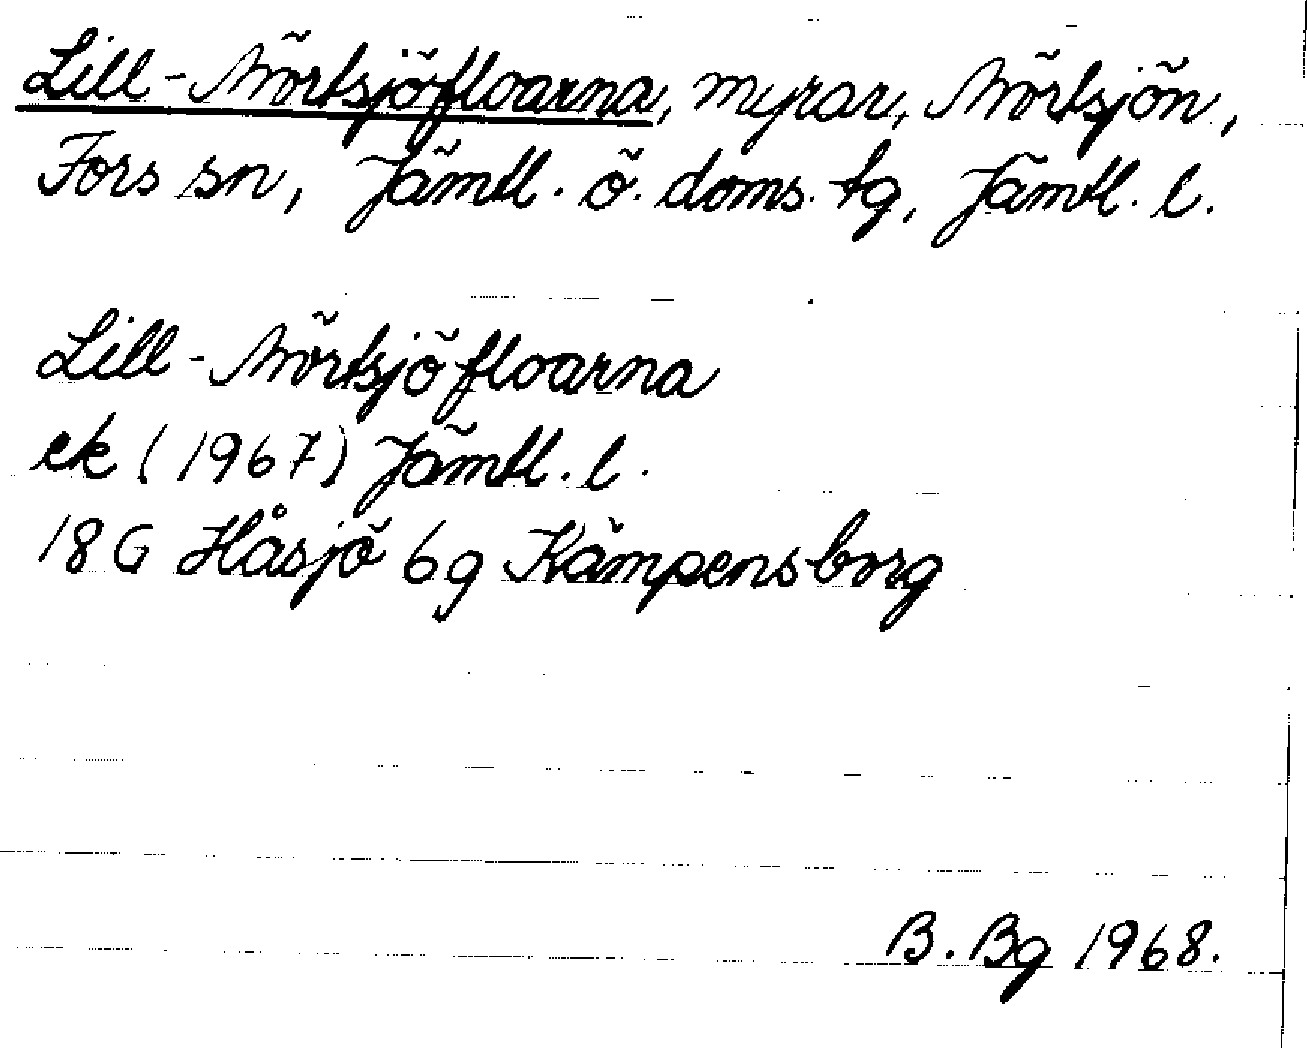 Lill-Mörtsjöfloarna, myrar, Mörtsjön,
Fors sn, Jämtl. ö. doms. tg, Jämtl. l.
Lill-Mörtsjöfloarna
ek (1967) Jämtl. l.
18 G Håsjö 6g Kämpensborg
B. Bg 1968.